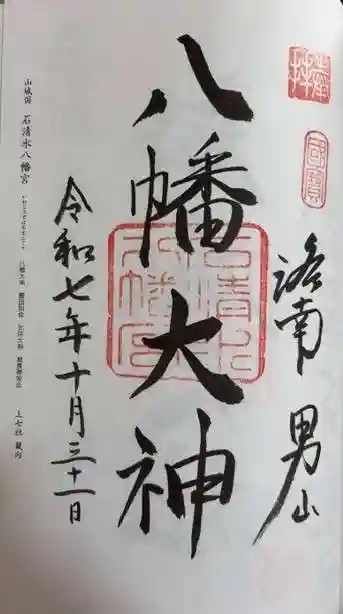 奉拝
國寶
洛南 男山
八幡大神
石清水八幡宮
令和七年十月三十一日
山城国 石清水八幡宮
上七社